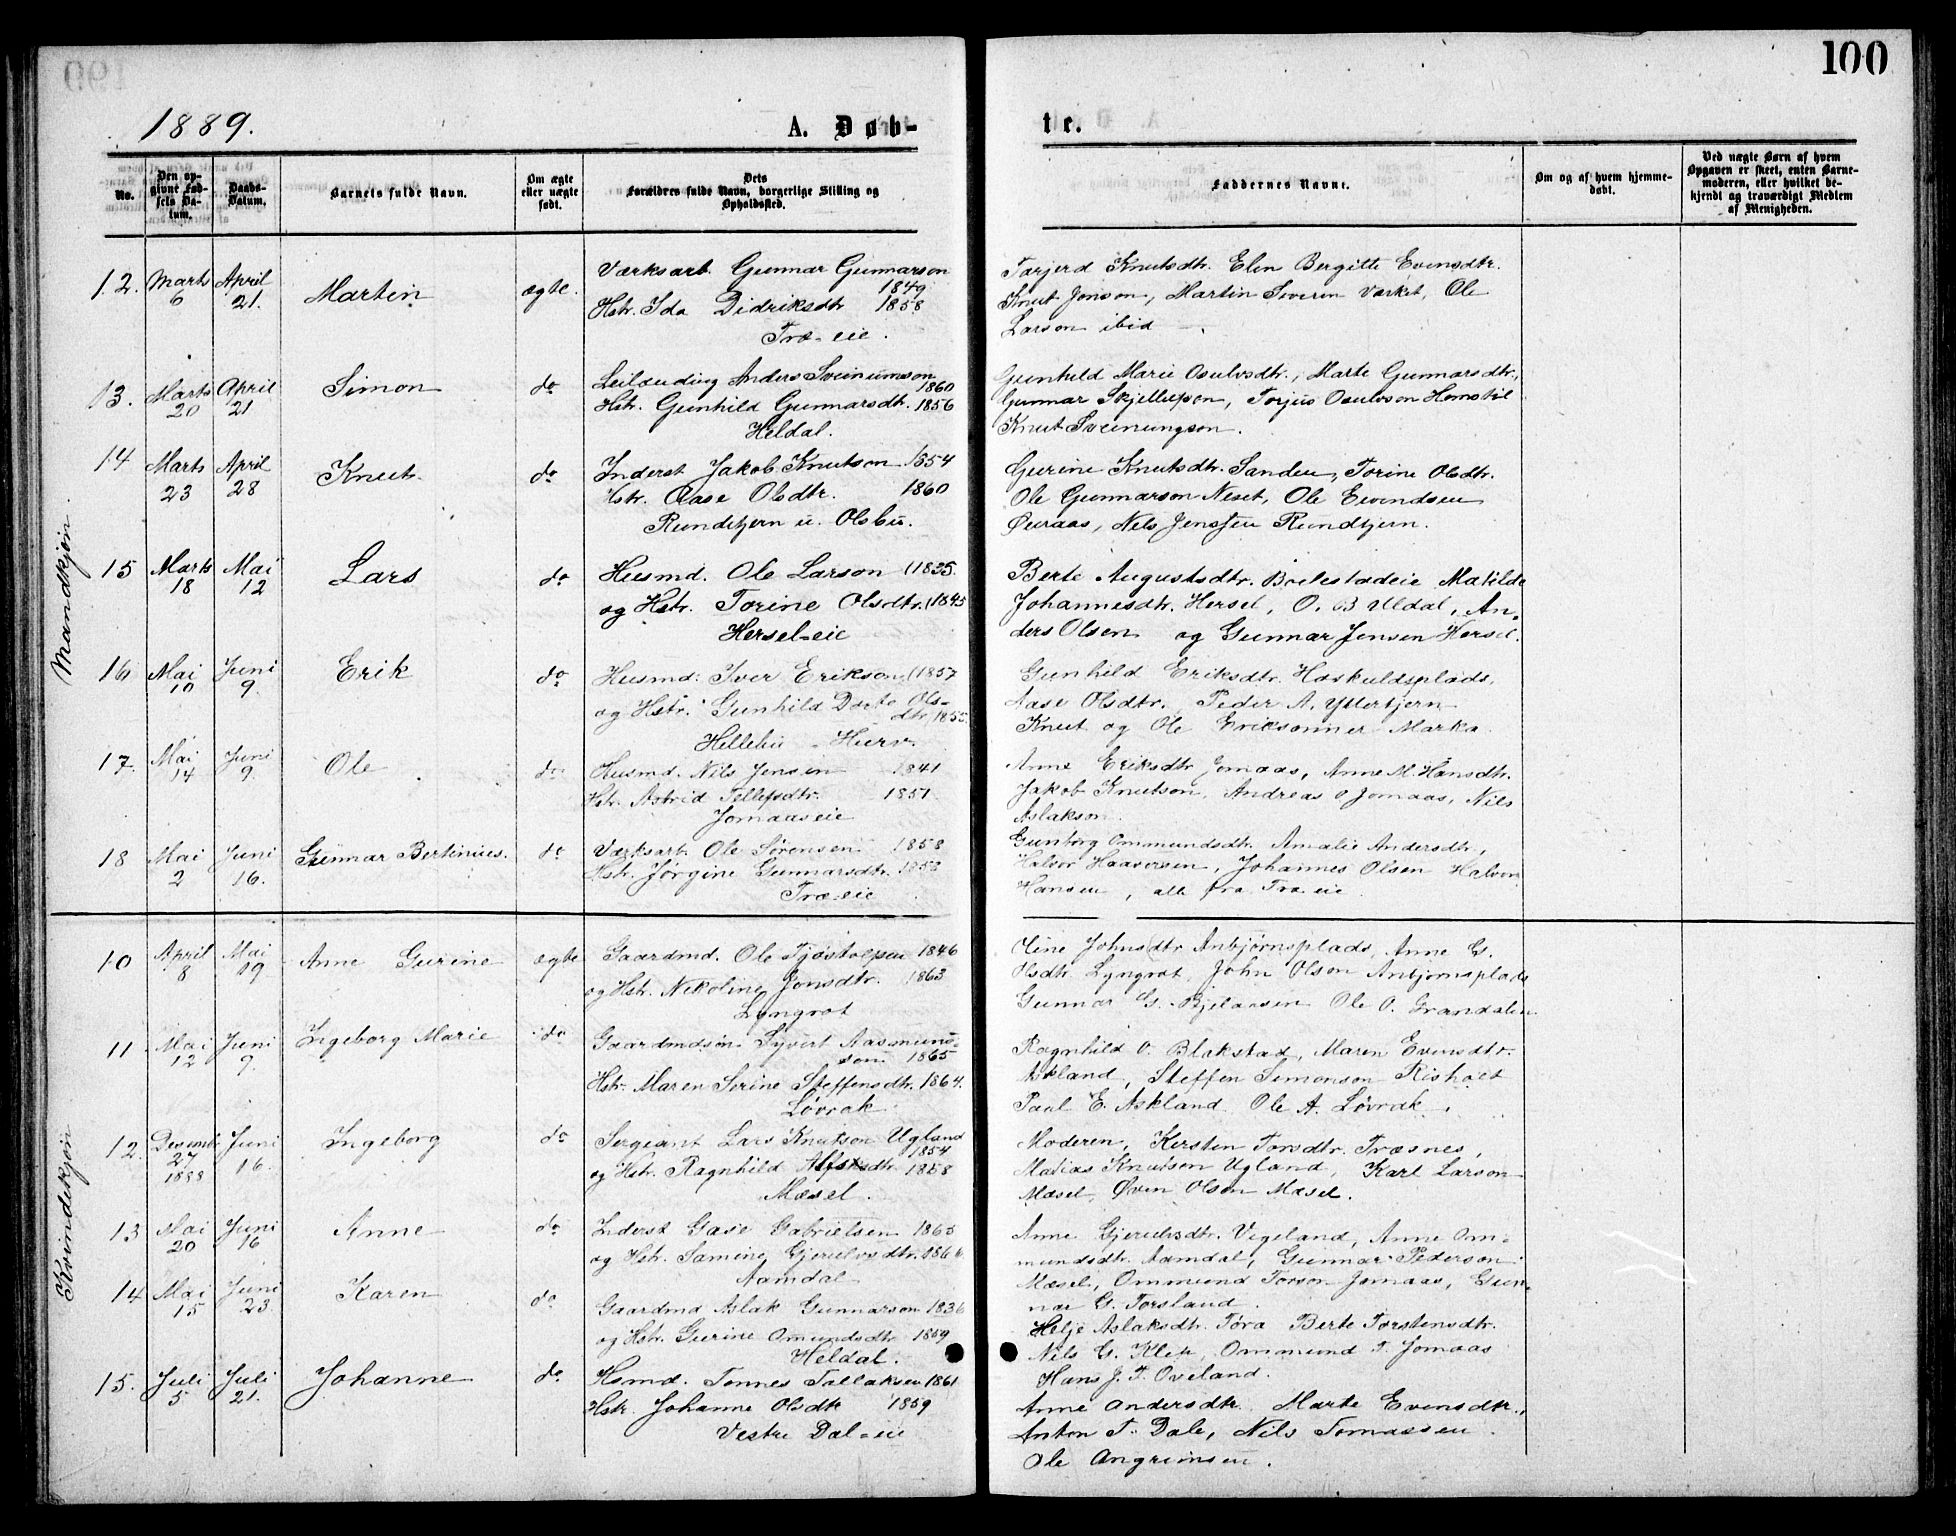 100
1889.
A. Døb-
te.
No.
Den op-
givne Fød-
sels Da-
tum.
Daabs-
Datum.
Barnets fulde Navn.
Om ægte
eller uægte
født.
Dets
Forældres fulde Navn, borgerlige Stilling og
Opholdssted.
Faddernes Navne.
Om og af hvem hjemme-
døbt.
Ved uægte Børn af hvem
Opgaven er skeet, enten Barne-
moderen, eller hvilket be-
kjendt og troværdigt Medlem
af Menigheden.
Mandkjøn
12. Marts 6 April 21. Martin ægte.
Værksarb. Gunnar Gunnarson 1849
Hstr. Ida Didriksdtr 1858
Træ-eie.
Torjerd Knutsdtr. Elen Bergitte Evensdtr.
Knut Jonson, Martin Severen Værket, Ole
Larson ibid
13. Marts 20 April 21 Simon do
Leilænding Anders Sveinunson 1860
Hstr. Gunhild Gunnarsdtr. 1856
Heldal.
Gunhild Marie Osulvsdtr., Marte Gunnarsdtr,
Gunnar Skjellupson, Torjus Osulvson Homstøl
Knut Sveinungson.
14 Marts 23 April 28 Knut do
Inderst Jakob Knutson 1854
Hstr. Aase Olsdtr. 1860
Rundtjern u. Olsbu.
Gurine Knutsdtr. Sanden, Torine Olsdtr.
Ole Gunnarson Neset, Ole Evendsen
Øuraas, Nils Jenssen Rundtjern.
15 Marts 18 Mai 12 Lars do
Husmd. Ole Larson (1835.
og Hstr. Torine Olsdtr. (1845
Hersel-eie
Berte Augustsdtr. Boelestadeie Matilde
Johannesdtr. Hersel, O. B Uldal, An-
ders Olsen og Gunnar Jensen Hersel.
16 Mai 10 Juni 9. Erik do
Husmd: Iver Erikson (1857
og Hstr. Gunhild Dorte Ols-
dtr. (1855
Hellebu - Hurv.
Gunhild Eriksdtr. Haskuldsplads,
Aase Olsdtr. Peder A. Yttertjern
Knut og Ole Eriksønner Marka
17. Mai 14 Juni 9. Ole do
Husmd. Nils Jensen 1841
Hstr. Astrid Tellefsdtr. 1851.
Jomaaseie
Anne Eriksdtr Jomaas, Anne M. Hansdtr.
Jakob Knutson, Andreas O Jomaas, Nils
Aslakson.
18 Mai 2 Juni 16. Gunnar Bertinius. do
Værksarb. Ole Sørensen 1858
Hstr. Jørgine Gunnarsdtr. 1853
Træ-eie
Gunborg Ommundsdtr. Amalie Andersdtr,
Halvor Haavorsen, Johannes Olsen Halvor
Hansen, alle fra Træ eie
Kvindekjøn
10 April 8 Mai 19 Anne Gurine ægte
Gaardmd. Ole Tjøstolvsen 1846
og Hstr. Nikoline Jonsdtr. 1863
Lyngrot
Oline Johnsdtr Anbjørnsplads, Anne G.
Olsdtr. Lyngrot, John Olson Anbjornsplads
Gunnar G. Bjelaasen Ole O. Grandalen
11 Mai 12 Juni 9. Ingeborg Marie do
Gaardmdsøn Syvert Aasmund-
son 1865
Hstr. Maren Serine Steffensdtr. 1864.
Løvrak
Ragnhild O. Blakstad, Maren Evensdtr.
Askland, Steffen Simonson Risholt
Paal E. Askland. Ole A. Løvrak.
12. Desembr 27 1888 Juni 16. Ingeborg do
Sergeant Lars Knutson Ugland 1854
og Hstr. Ragnhild Alfsdtr 1858
Mæsel.
Moderen, Kersten Torsdtr. Træsnes,
Matias Knutson Ugland, Karl Larson
Mæsel, Øven Olson Mæsel.
13 Mai 20 Juni 16 Anne do
Inderst Gase Gabrielsen 1865
og Hstr. Samine Gjerulvsdtr. 1866
Aamdal
Anne Gjerulvsdtr. Vegeland, Anne Om-
mundsdtr. Aamdal, Gunnar Pederson
Mæsel, Ommund Torson Jomaas, Gun-
nar G. Torsland.
14 Mai 15 Juni 23. Karen do
Gaardmd Aslak Gunnarson 1836
og Hstr. Gurine Omundsdtr 1859
Heldal.
Helje Aslaksdtr. Tøra Berte Torstensdtr.
Nils G. Klep, Ommund T. Jomaas
Hans J. T. Oveland.
15. Juli 5 Juli 21. Johanne do
Hsmd. Tønnes Tallaksen 1861
Hstr. Johanne Olsdtr 1859
Vestre Dal-eie
Anne Andersdtr. Marte Evensdtr.,
Anton T. Dale, Nils Tomassen
Ole Angrimsen.